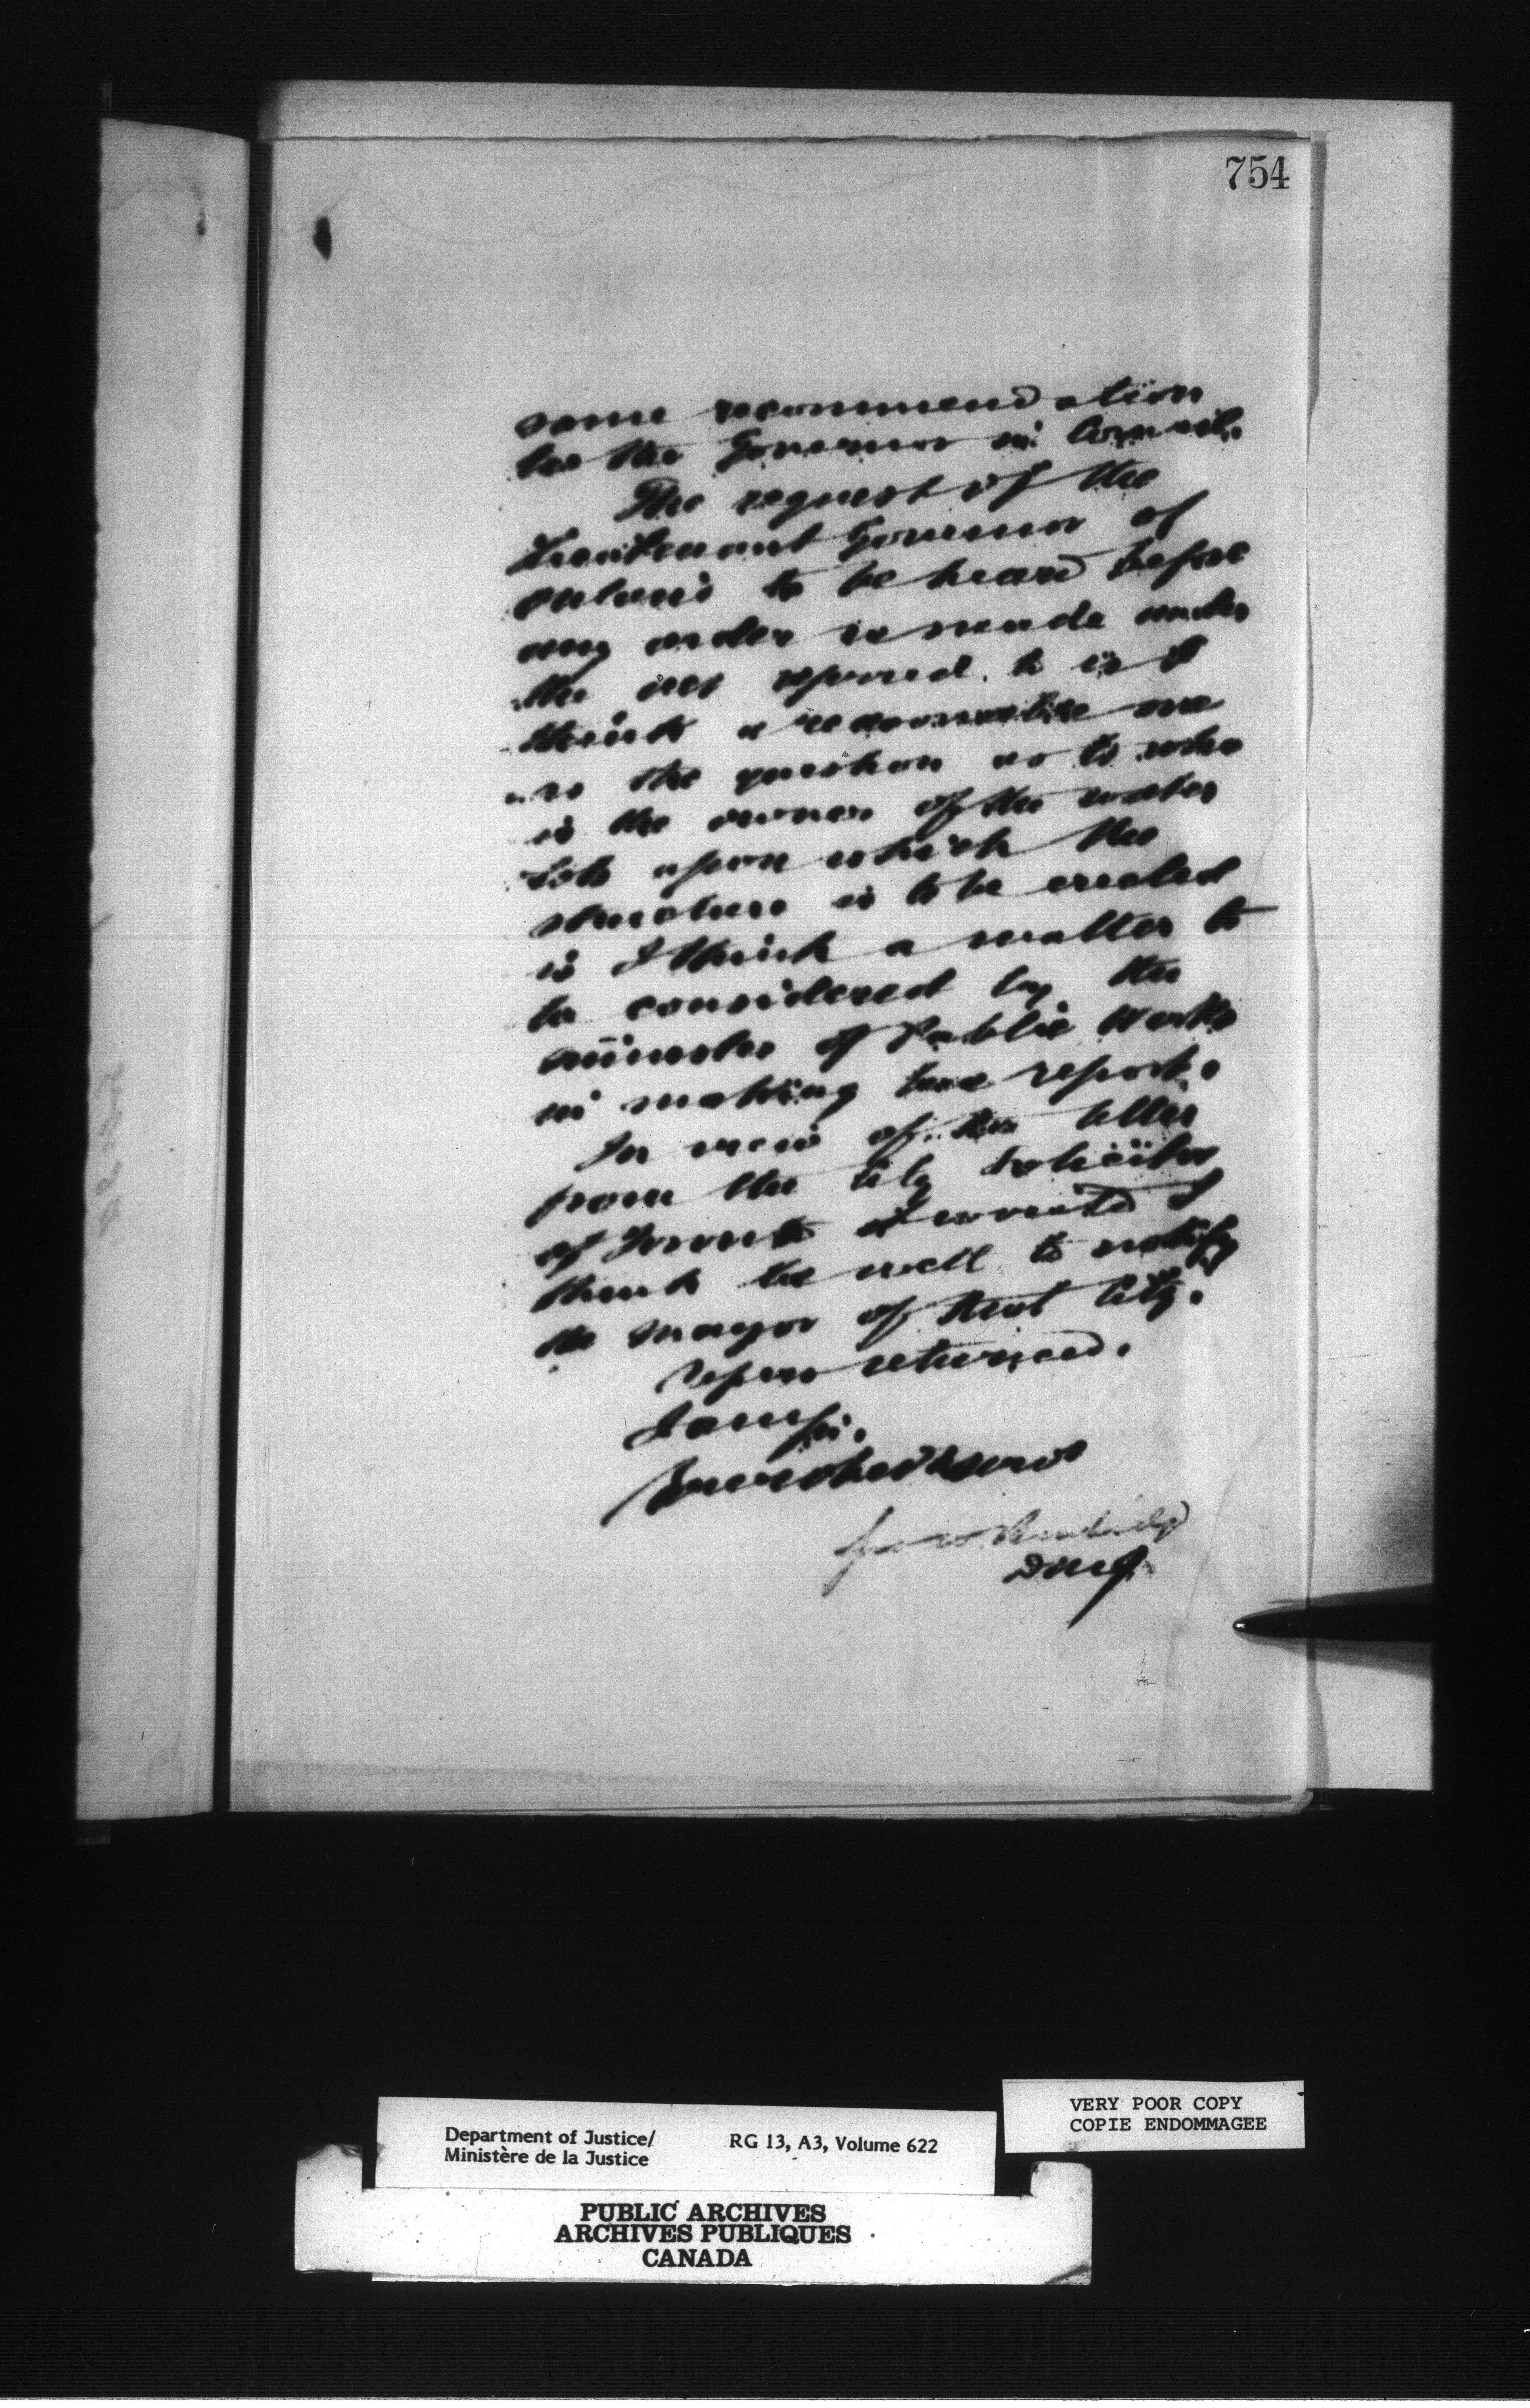 754
some recommendation
to the Governor in Council.
The request of the
Lieutenant Governor of
Ontario to be heard before
any order is made under
the act referred to is I
think a reasonable one
as the question as to who
is the owner of the water
lots upon which the
structure is to be erected
is I think a matter to
be considered by the
minister of Public Works
in making his report.
In view of the letter
from the City Solicitor
of Toronto it would I
think be well to notify
the Mayor of that City.
Papers returned.
I am Sir,
Your obed servt
DMJ
Department of Justice/
Ministère de la Justice
RG 13, A3, Volume 622
VERY POOR COPY
COPIE ENDOMMAGEE
PUBLIC ARCHIVES
ARCHIVES PUBLIQUES
CANADA